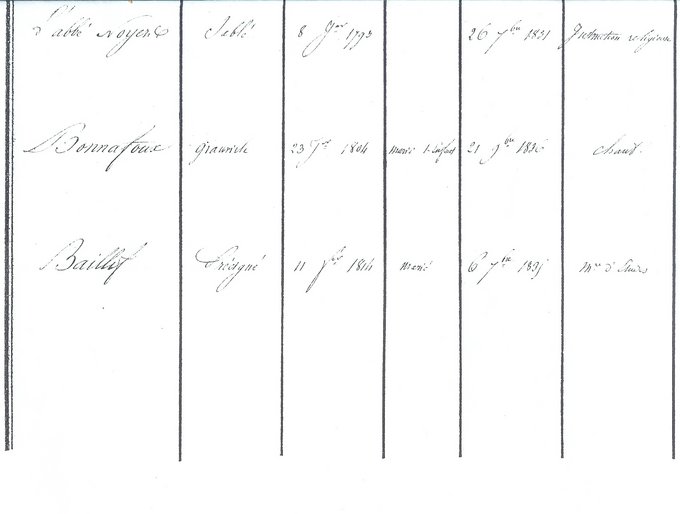 L'abbé Noyer Sablé 8 Jer 1793 26 7bre 1821 Instruction religieuse
Bonnafoux 23 Jer 1804 marié 1 enfant 21 9bre 1836 chant.
Baillif Précigné 11 1814 marié 6 7bre Mre d'Etudes